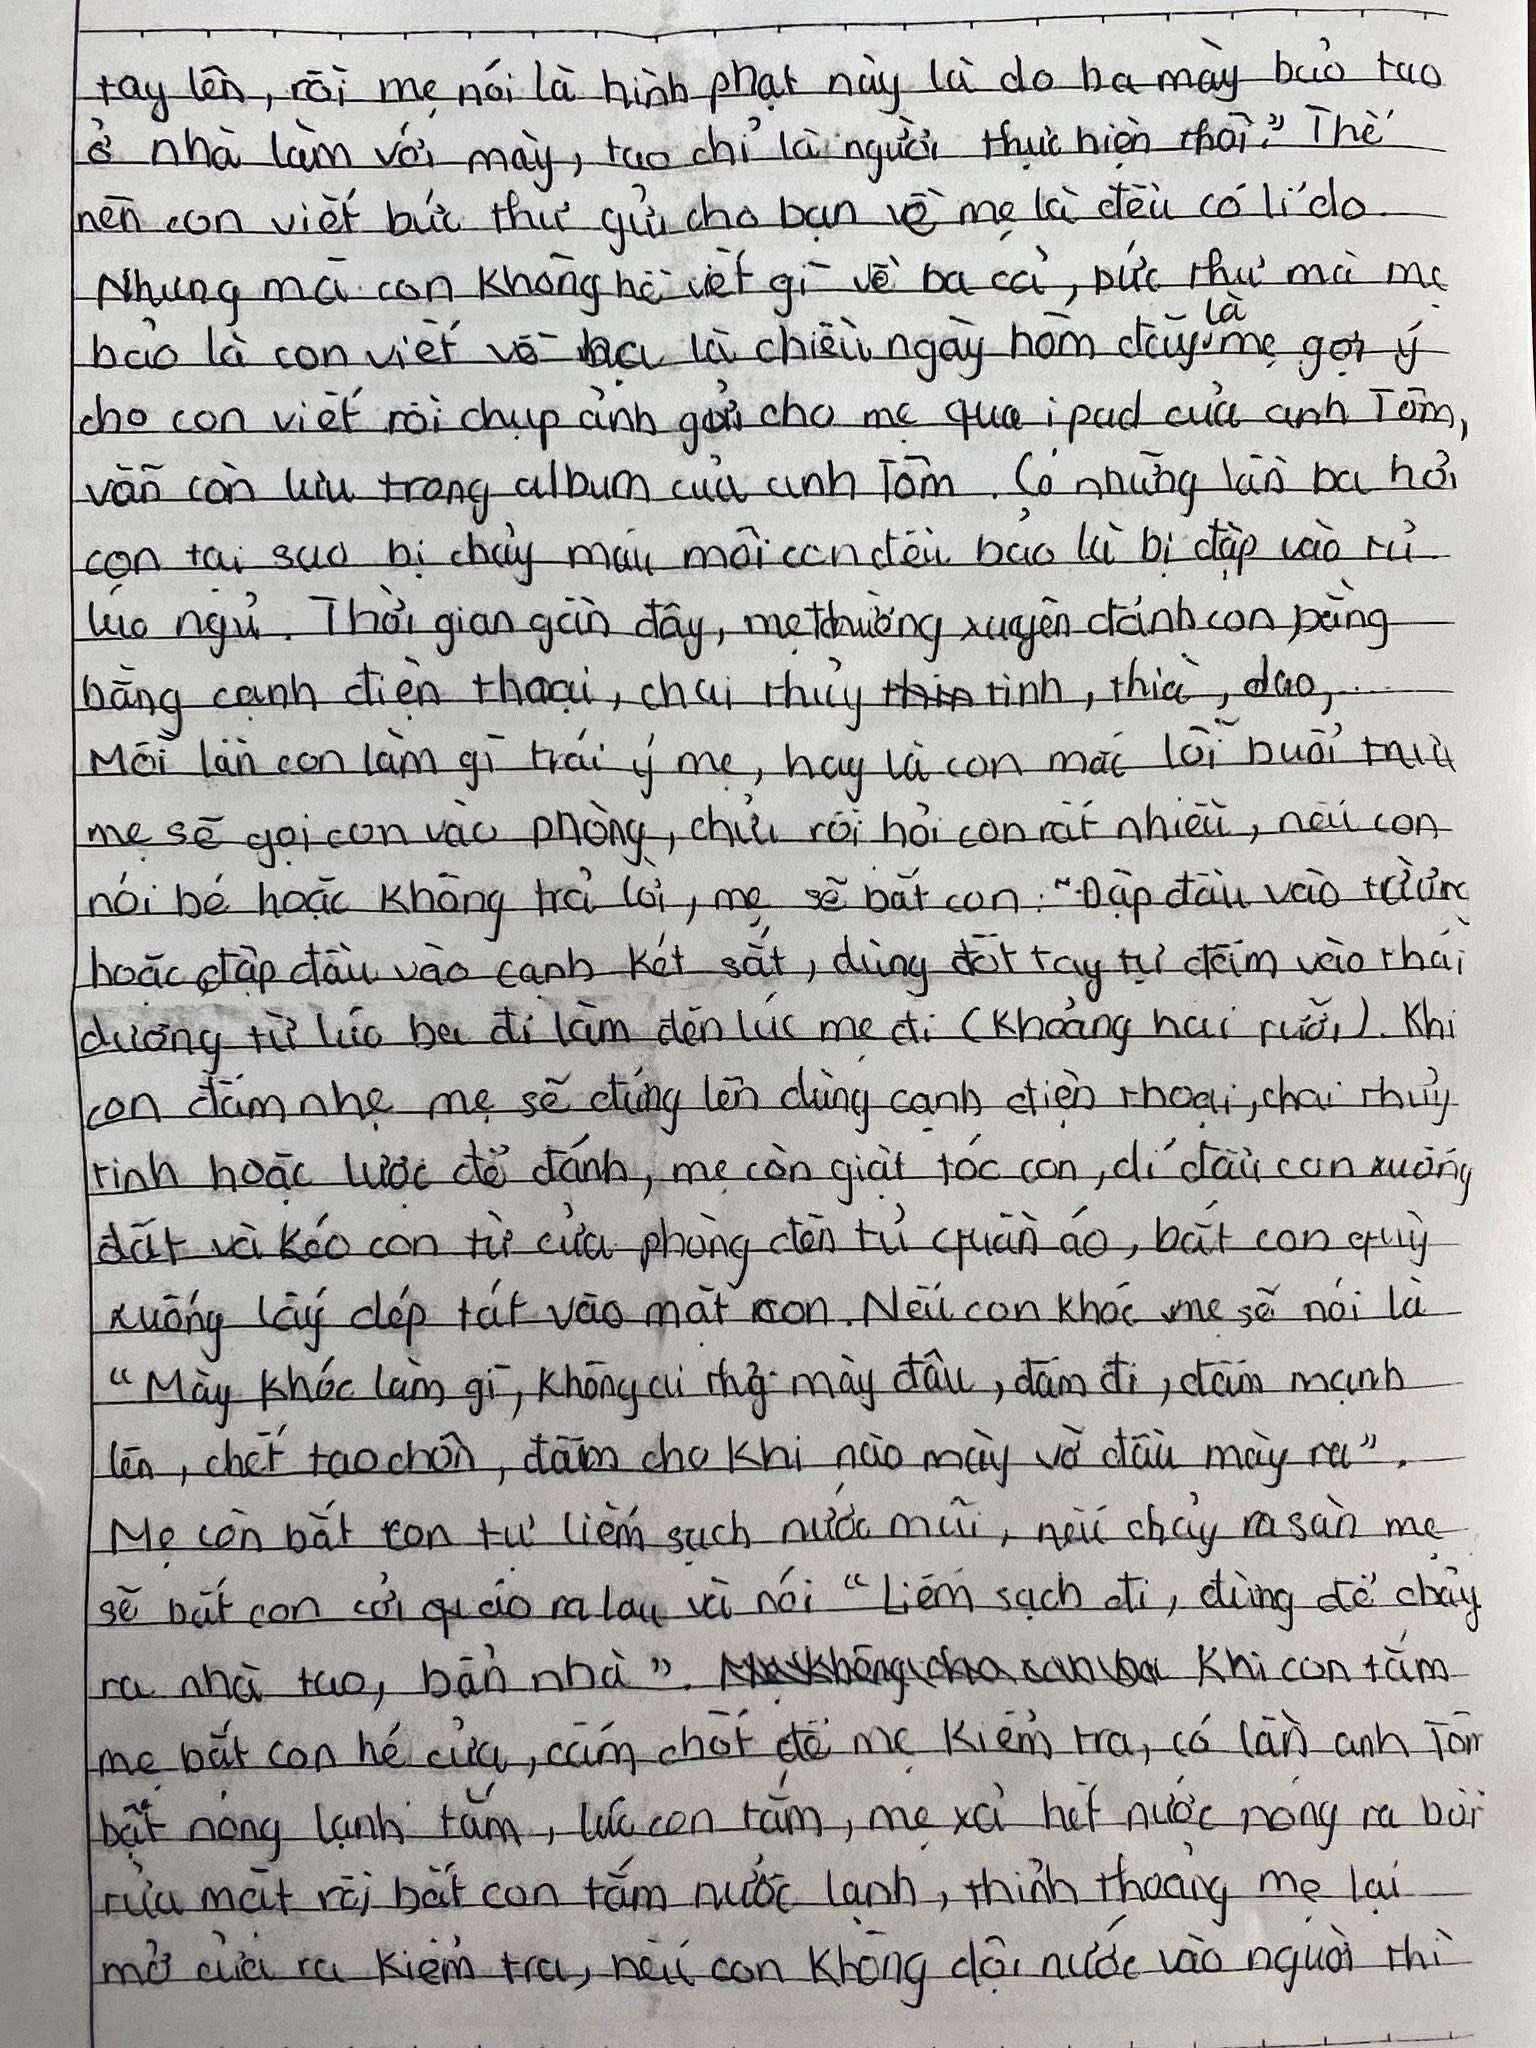 tay lên, rồi mẹ nói là hình phạt này là do ba mày bảo tao
ở nhà làm với mày, tao chỉ là người thực hiện thôi." Thế
nên con viết bức thư gửi cho bạn về mẹ là đều có lí do
Nhưng mà con không hề viết gì về ba cả, bức thư mà mẹ
bảo là con viết về ba là chiều ngày hôm đấy là mẹ gợi ý
cho con viết rồi chụp ảnh gửi cho mẹ qua ipad của anh Tôm,
vẫn còn lưu trong album của anh Tôm. Có những lần ba hỏi
con tại sao bị chảy máu môi con đều bảo là bị đập vào tủ
lúc ngủ. Thời gian gần đây, mẹ thường xuyên đánh con bằng
bằng cạnh điện thoại, chai thủy tinh, thìa, dao,.....
Mỗi lần con làm gì trái ý mẹ, hay là con mắc lỗi buổi trưa
mẹ sẽ gọi con vào phòng, chửi rồi hỏi con rất nhiều, nếu con
nói bé hoặc không trả lời, mẹ sẽ bắt con: "Đập đầu vào tường
hoặc đập đầu vào cạnh két sắt, dùng đốt tay tự đấm vào thái
dương từ lúc ba đi làm đến lúc mẹ đi (khoảng hai rưỡi). Khi
con đấm nhẹ mẹ sẽ đứng lên dùng cạnh điện thoại, chai thủy
tinh hoặc lược để đánh, mẹ còn giật tóc con, dí đầu con xuống
đất và kéo con từ cửa phòng đến tủ quần áo, bắt con quỳ
xuống lấy dép tát vào mặt con. Nếu con khóc mẹ sẽ nói là
"Mày khóc làm gì, không ai thg mày đâu, đấm đi, đấm mạnh
lên, chết tao chôn, đấm cho khi nào mày vỡ đầu mày ra".
Mẹ còn bắt con tự liếm sạch nước mũi, nếu chảy ra sàn mẹ
sẽ bắt con cởi áo ra lau và nói "Liếm sạch đi, đừng để chảy
ra nhà tao, bẩn nhà". Khi con tắm
mẹ bắt con hé cửa, cấm chốt để mẹ kiểm tra, có lần anh Tôm
bật nóng lạnh tắm, lúc con tắm, mẹ xả hết nước nóng ra bồn
rửa mặt rồi bắt con tắm nước lạnh, thỉnh thoảng mẹ lại
mở cửa ra kiểm tra, nếu con không dội nước vào người thì